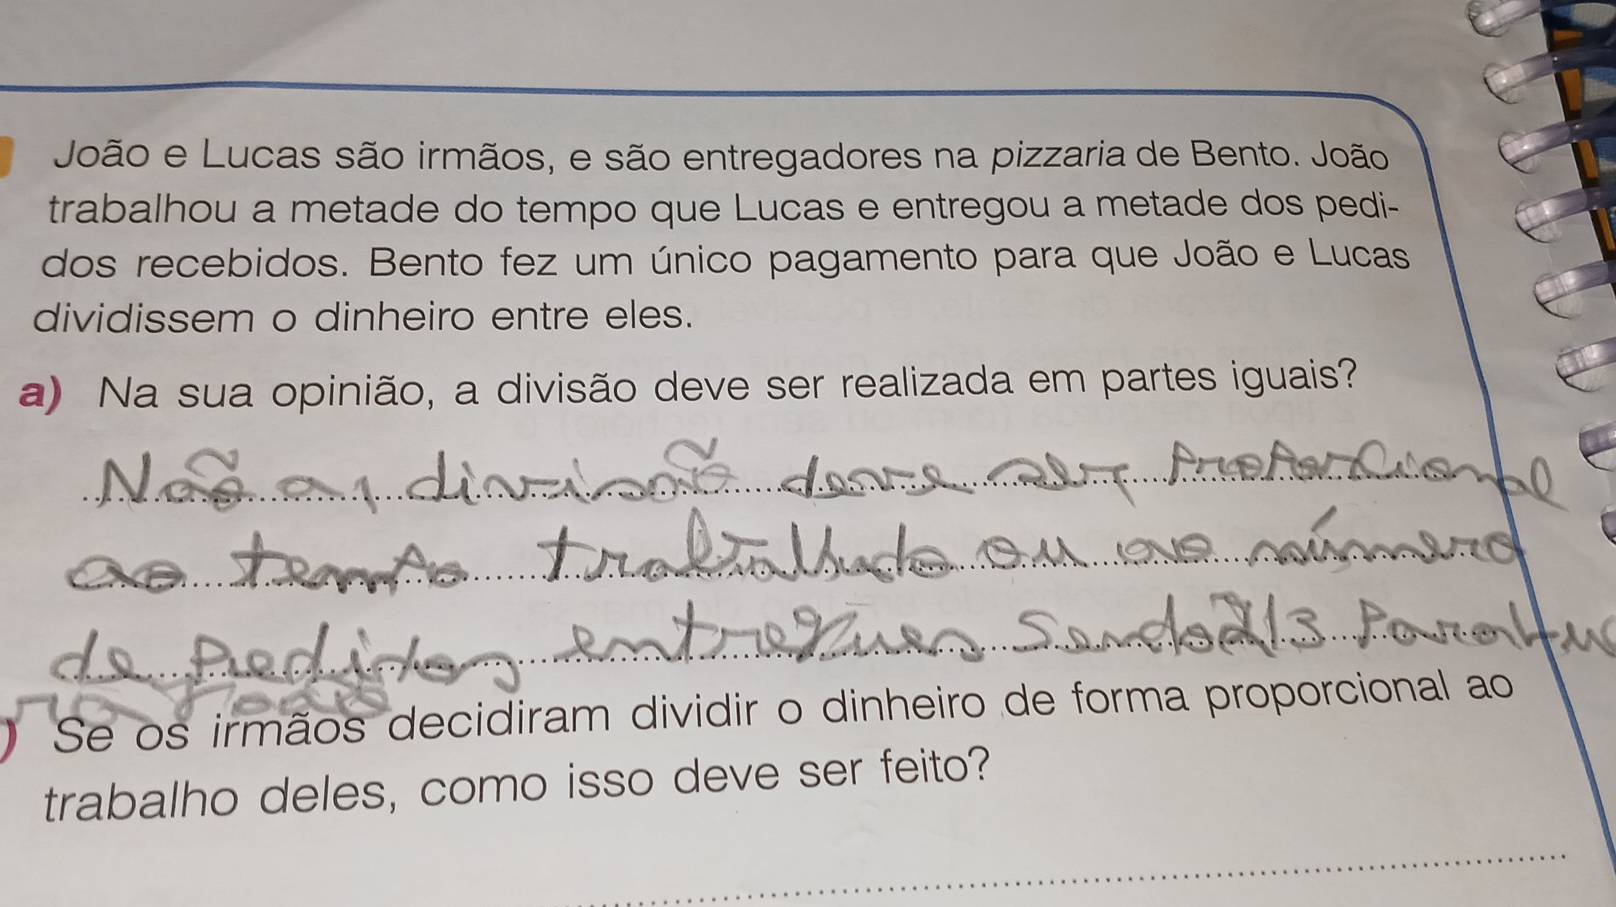 João e Lucas são irmãos, e são entregadores na pizzaria de Bento. João
trabalhou a metade do tempo que Lucas e entregou a metade dos pedi-
dos recebidos. Bento fez um único pagamento para que João e Lucas
dividissem o dinheiro entre eles.
a) Na sua opinião, a divisão deve ser realizada em partes iguais?
Não a, divisão deve ser proporcional
ao tempo trabalhado ou ao número
de pedidos entregues Sendo 2/3 Para Lu
) Se os irmãos decidiram dividir o dinheiro de forma proporcional ao
trabalho deles, como isso deve ser feito?